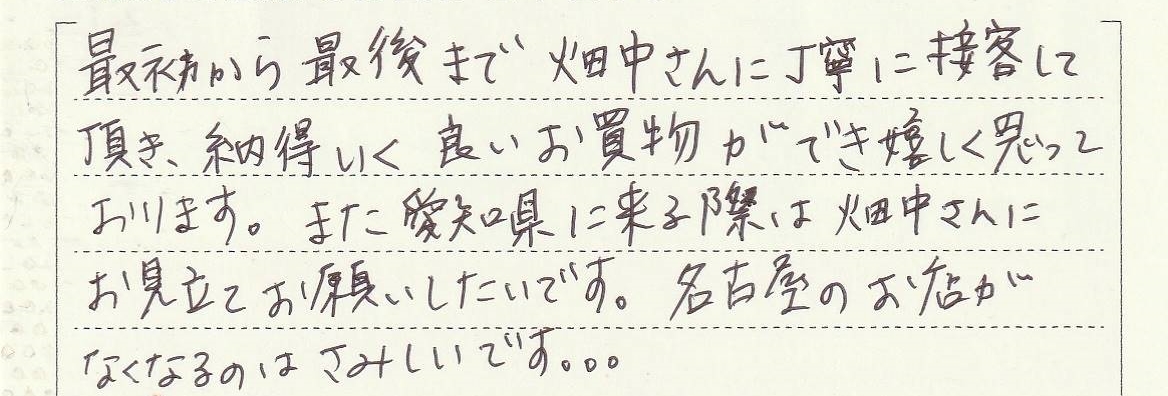 最初から最後まで畑中さんに丁寧に接客して
頂き、納得いく良いお買物ができ嬉しく思って
おります。また愛知県に来る際は畑中さんに
お見立てお願いしたいです。名古屋のお店が
なくなるのはさみしいです。。。